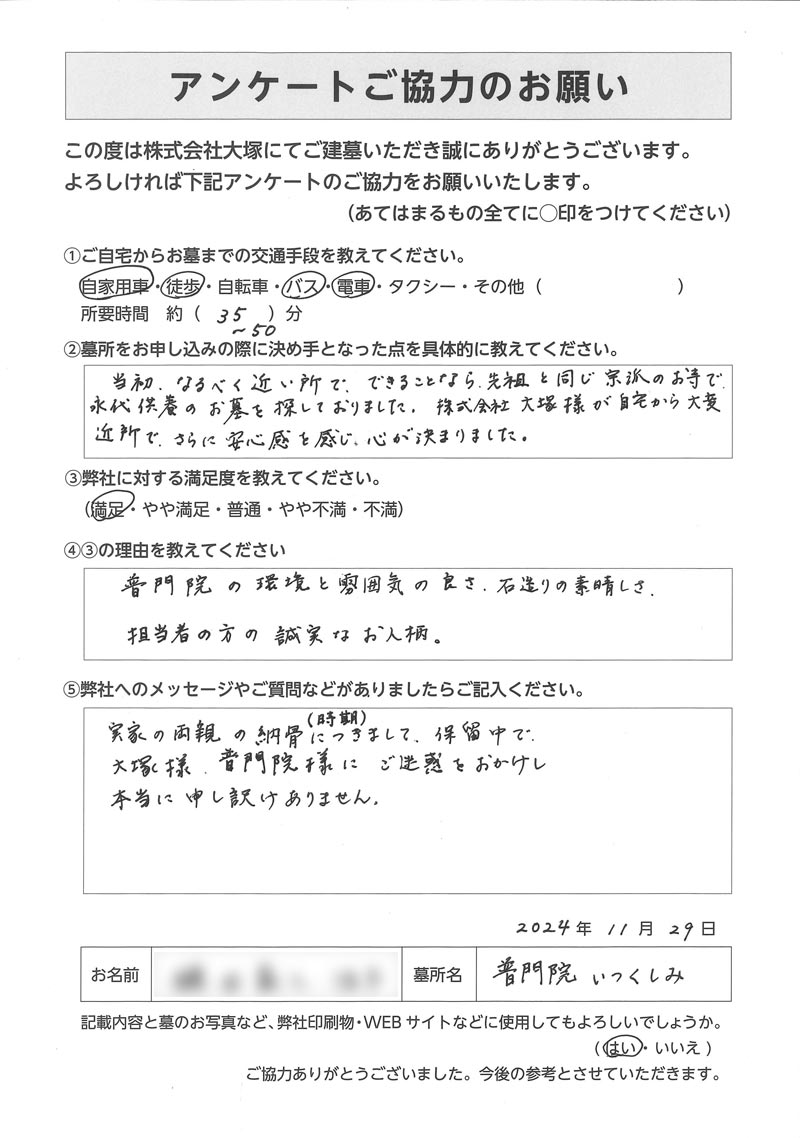 アンケートご協力のお願い
この度は株式会社大塚にてご建墓いただき誠にありがとうございます。
よろしければ下記アンケートのご協力をお願いいたします。
（あてはまるもの全てに○印をつけてください）
①ご自宅からお墓までの交通手段を教えてください。
自家用車・徒歩・自転車・バス・電車・タクシー・その他（　　　　　　　　）
所要時間　約（　35　）分
～50
②墓所をお申し込みの際に決め手となった点を具体的に教えてください。
当初、なるべく近い所で、できることなら、先祖と同じ宗派のお寺で、
永代供養のお墓を探しておりました。株式会社大塚様が自宅から大変
近所で、さらに安心感を感じ、心が決まりました。
③弊社に対する満足度を教えてください。
（満足・やや満足・普通・やや不満・不満）
④③の理由を教えてください
普門院の環境と雰囲気の良さ、石造りの素晴しさ、
担当者の方の誠実なお人柄。
⑤弊社へのメッセージやご質問などがありましたらご記入ください。
（時期）
実家の両親の納骨につきまして、保留中で、
大塚様、普門院様にご迷惑をおかけし
本当に申し訳けありません。
2024年 11月 29日
お名前　墓所名　普門院 いつくしみ
記載内容と墓のお写真など、弊社印刷物・WEBサイトなどに使用してもよろしいでしょうか。
（はい・いいえ）
ご協力ありがとうございました。今後の参考とさせていただきます。